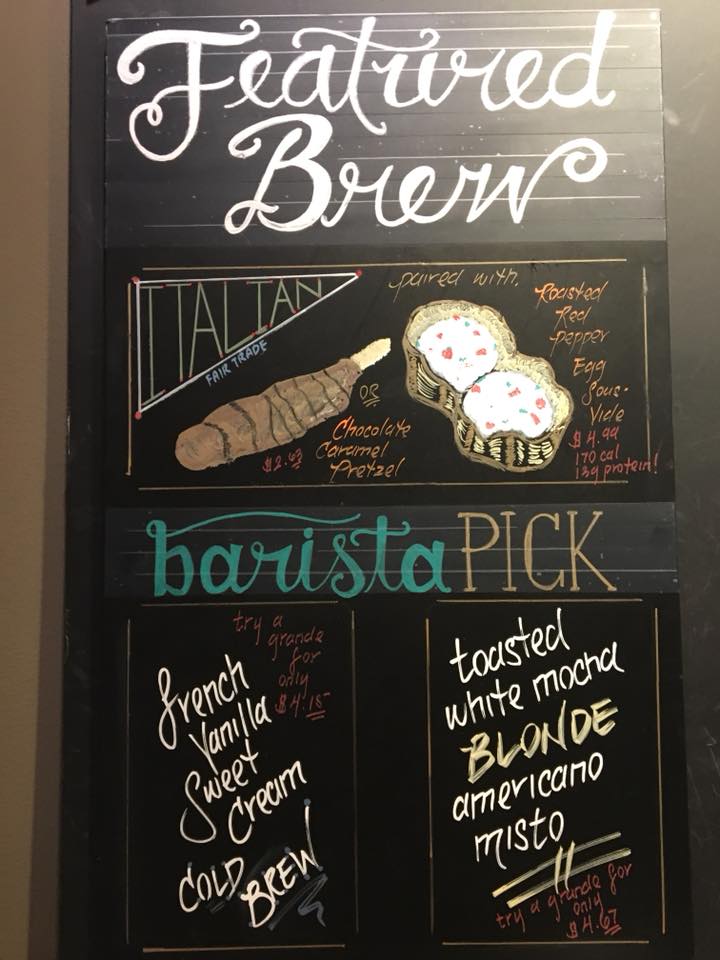 Featured
Brew
ITALIAN
FAIR TRADE
paired with.
Roasted
Red
Pepper
Egg
Sous-
Vide
$4.99
170 cal
13g protein!
OR
Chocolate
Caramel
Pretzel
$2.63
barista PICK
try a
grande
for
only
$4.15
french
Vanilla
Sweet
Cream
COLD
BREW
toasted
white mocha
BLONDE
americano
misto
try a grande for
only
$4.67